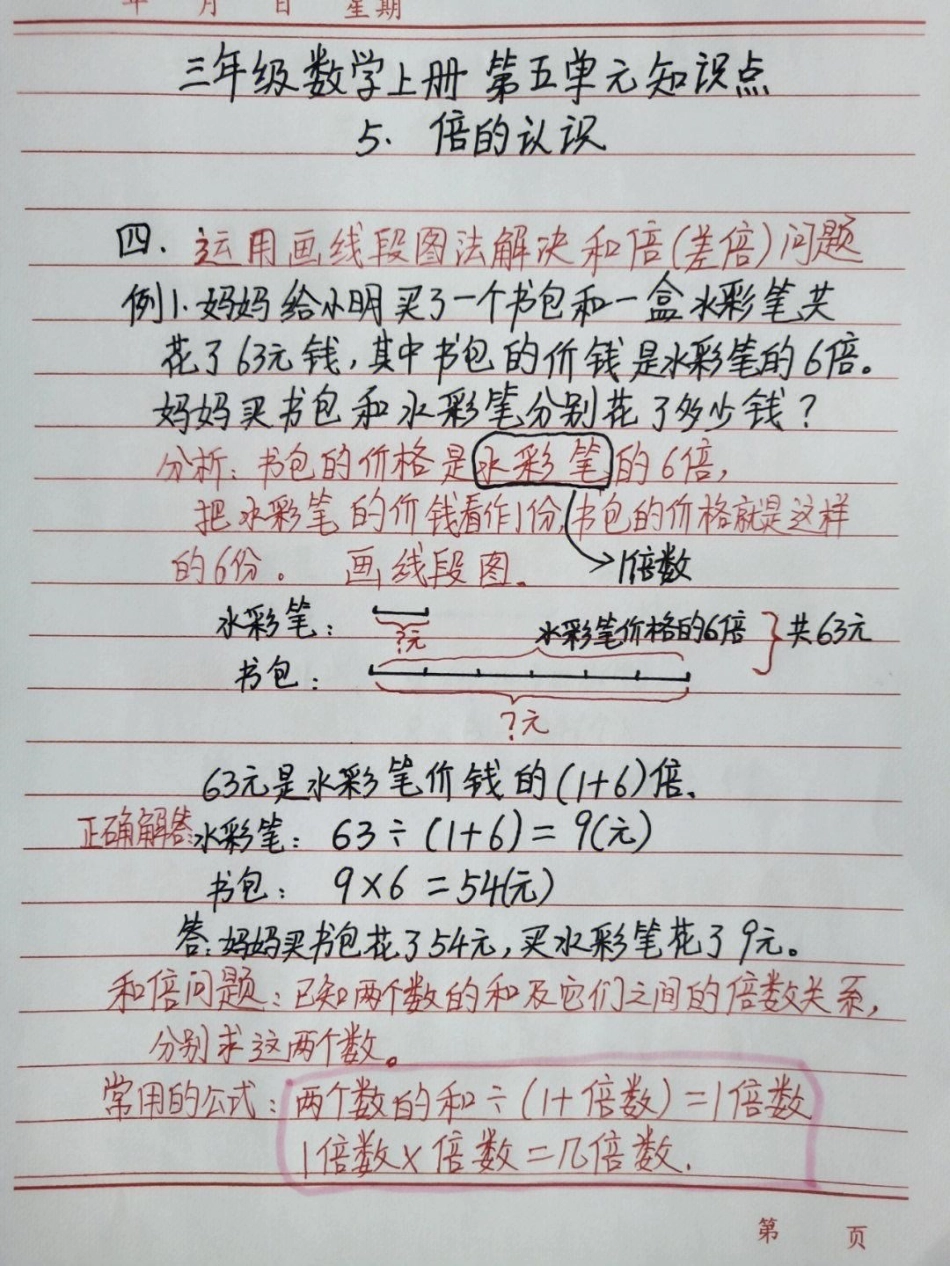 年 月 日 星期
三年级数学上册 第五单元知识点
5. 倍的认识
四. 运用画线段图法解决和倍(差倍)问题
例1. 妈妈给小明买了一个书包和一盒水彩笔,共
花了63元钱,其中书包的价钱是水彩笔的6倍。
妈妈买书包和水彩笔分别花了多少钱?
分析:书包的价格是水彩笔的6倍,
把水彩笔的价钱看作1份,书包的价格就是这样
的6份。 画线段图。 1倍数
水彩笔: ?元 水彩笔价格的6倍 共63元
书包:
?元
63元是水彩笔价钱的(1+6)倍.
正确解答:水彩笔: 63÷(1+6)=9(元)
书包: 9×6=54(元)
答:妈妈买书包花了54元,买水彩笔花了9元。
和倍问题:已知两个数的和及它们之间的倍数关系,
分别求这两个数。
常用的公式:两个数的和÷(1+倍数)=1倍数
1倍数×倍数=几倍数.
第 页